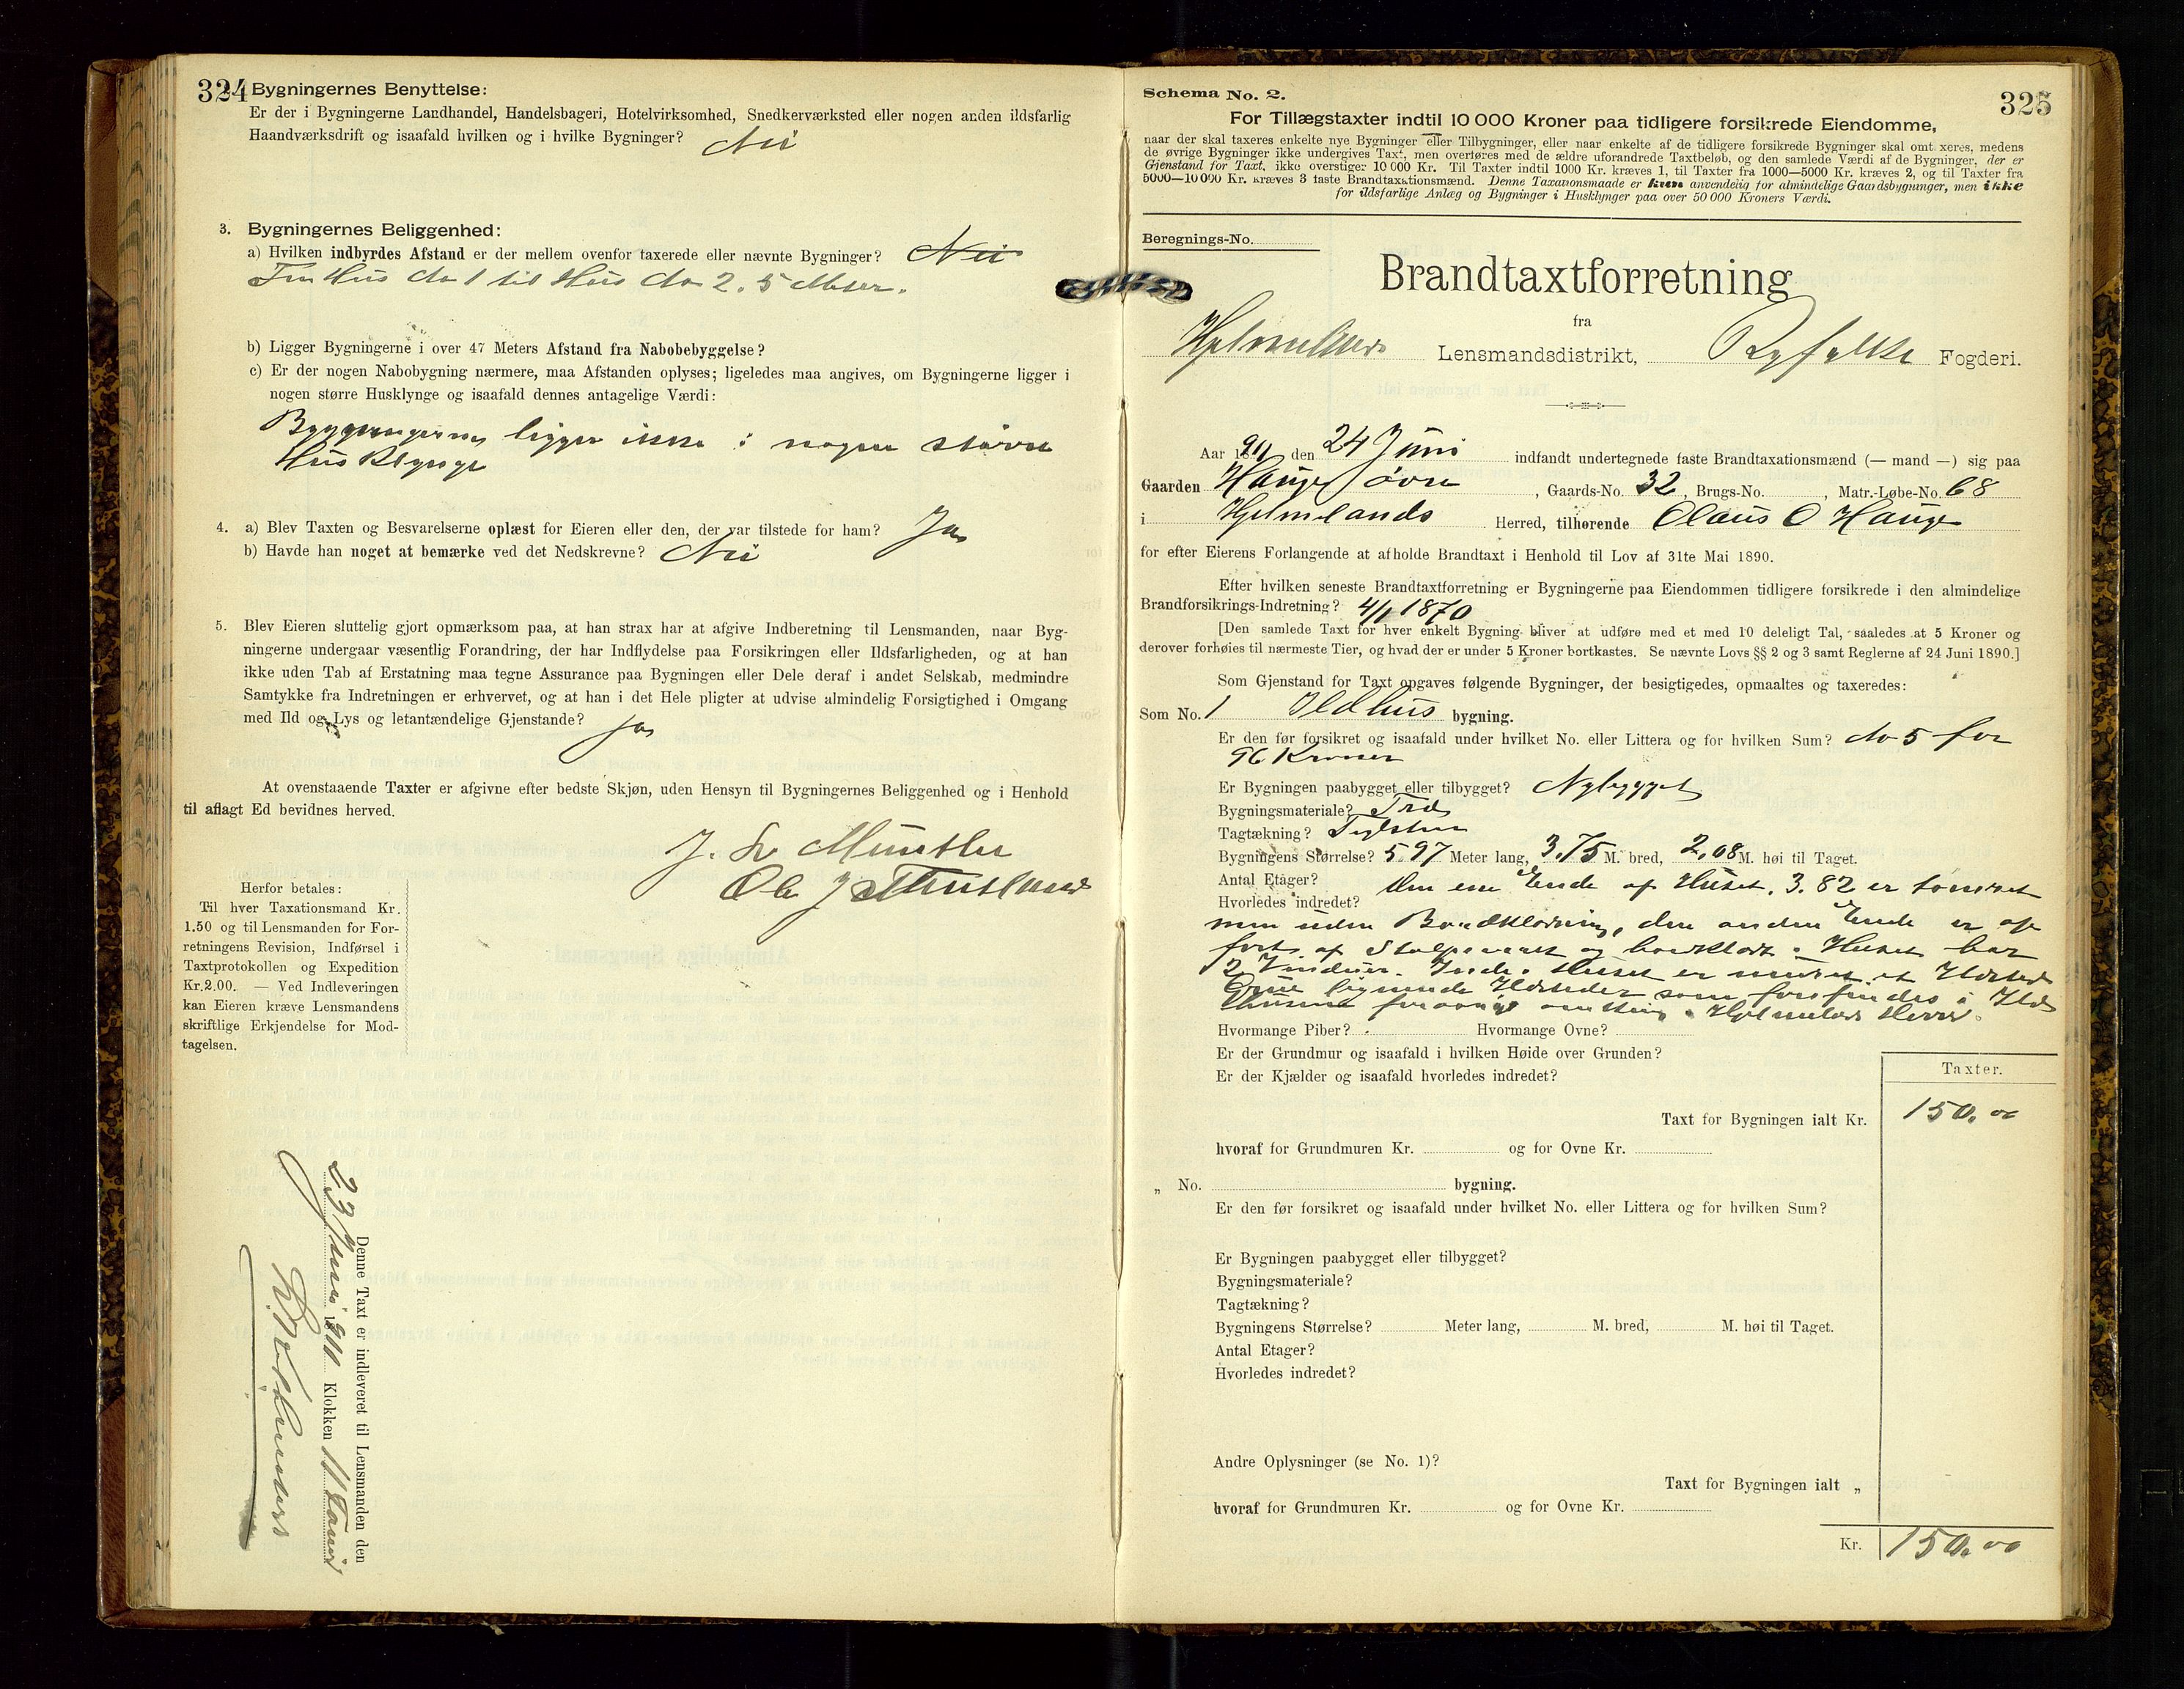 324
Bygningernes Benyttelse:
Er der i Bygningerne Landhandel, Handelsbageri, Hotelvirksomhed, Snedkerværksted eller nogen anden ildsfarlig
Haandværksdrift og isaafald hvilken og i hvilke Bygninger? Nei
3. Bygningernes Beliggenhed:
a) Hvilken indbyrdes Afstand er der mellem ovenfor taxerede eller nævnte Bygninger? Nei
Fra Hus No 1 til Hus No 2. 5 Meter.
b) Ligger Bygningerne i over 47 Meters Afstand fra Nabobebyggelse?
c) Er der nogen Nabobygning nærmere, maa Afstanden oplyses; ligeledes maa angives, om Bygningerne ligger i
nogen større Husklynge og isaafald dennes antagelige Værdi:
Bygningernes ligger ikke i nogen større
Husklynge
4. a) Blev Taxten og Besvarelserne oplæst for Eieren eller den, der var tilstede for ham? Ja
b) Havde han noget at bemærke ved det Nedskrevne? Nei
5. Blev Eieren sluttelig gjort opmærksom paa, at han strax har at afgive Indberetning til Lensmanden, naar Byg-
ningerne undergaar væsentlig Forandring, der har Indflydelse paa Forsikringen eller Ildsfarligheden, og at han
ikke uden Tab af Erstatning maa tegne Assurance paa Bygningen eller Dele deraf i andet Selskab, medmindre
Samtykke fra Indretningen er erhvervet, og at han i det Hele pligter at udvise almindelig Forsigtighed i Omgang
med Ild og Lys og letantændelige Gjenstande? Ja
At ovenstaaende Taxter er afgivne efter bedste Skjøn, uden Hensyn til Bygningernes Beliggenhed og i Henhold
til aflagt Ed bevidnes herved.
Ole J
Herfor betales:
Til hver Taxationsmand Kr.
1.50 og til Lensmanden for For-
retningens Revision, Indførsel i
Taxtprotokollen og Expedition
Kr.2.00. — Ved Indleveringen
kan Eieren kræve Lensmandens
skriftlige Erkjendelse for Mod-
tagelsen.
Denne Taxt er indleveret til Lensmanden den
Klokken 11
Schema No. 2.
325
For Tillægstaxter indtil 10 000 Kroner paa tidligere forsikrede Eiendomme,
naar der skal taxeres enkelte nye Bygninger eller Tilbygninger, eller naar enkelte af de tidligere forsikrede Bygninger skal omt xeres, medens
de øvrige Bygninger ikke undergives Taxt, men overføres med de ældre uforandrede Taxtbeløb, og den samlede Værdi af de Bygninger, der er
Gjenstand for Taxt, ikke overstiger 10 000 Kr. Til Taxter indtil 1000 Kr. kræves 1, til Taxter fra 1000—5000 Kr. kræves 2, og til Taxter fra
5000—10 000 Kr. kræves 3 faste Brandtaxationsmænd. Denne Taxationsmaade er kun anvendelig for almindelige Gaardsbygninger, men ikke
for ildsfarlige Anlæg og Bygninger i Husklynger paa over 50 000 Kroners Værdi.
Beregnings-No.
Brandtaxtforretning
fra
Hjelmelands Lensmandsdistrikt, Ryfylke Fogderi.
Aar den 24 Juni indfandt undertegnede faste Brandtaxationsmænd (— mand —) sig paa
Gaarden Hauge øvre, Gaards-No. 32, Brugs-No. , Matr.-Løbe-No. 68
i Hjelmelands Herred, tilhørende Olaus O Hauge
for efter Eierens Forlangende at afholde Brandtaxt i Henhold til Lov af 31te Mai 1890.
Efter hvilken seneste Brandtaxtforretning er Bygningerne paa Eiendommen tidligere forsikrede i den almindelige
Brandforsikrings-Indretning? 4/1 1870
[Den samlede Taxt for hver enkelt Bygning bliver at udføre med et med 10 deleligt Tal, saaledes at 5 Kroner og
derover forhøies til nærmeste Tier, og hvad der er under 5 Kroner bortkastes. Se nævnte Lovs §§ 2 og 3 samt Reglerne af 24 Juni 1890.]
Som Gjenstand for Taxt opgaves følgende Bygninger, der besigtigedes, opmaaltes og taxeredes:
Som No. 1 Ildhus bygning.
Er den før forsikret og isaafald under hvilket No. eller Littera og for hvilken Sum? No 5 for
96 Kroner
Er Bygningen paabygget eller tilbygget? Nybygget
Bygningsmateriale? Træ
Tagtækning? Teglsten
Bygningens Størrelse? 5.97 Meter lang, 3.75 M. bred, 2.08 M. høi til Taget.
Antal Etager?
Hvorledes indredet? Den ene Ende af Huset, 3.82 er tømret
men uden Bordklædning, den anden Ende er op
ført af Stolpeværk og bordklædt. Huset har
2 Vinduer. Inde i Huset er muret et Ildsted
lignende Ildsteder som forefindes i Ild
husene Hjelmelands Herred.
Hvormange Piber? Hvormange Ovne?
Er der Grundmur og isaafald i hvilken Høide over Grunden?
Er der Kjælder og isaafald hvorledes indredet?
Taxter.
Taxt for Bygningen ialt Kr. 150.00
hvoraf for Grundmuren Kr. og for Ovne Kr.
„ No. bygning.
Er den før forsikret og isaafald under hvilket No. eller Littera og for hvilken Sum?
Er Bygningen paabygget eller tilbygget?
Bygningsmateriale?
Tagtækning?
Bygningens Størrelse? Meter lang, M. bred, M. høi til Taget.
Antal Etager?
Hvorledes indredet?
Andre Oplysninger (se No. 1)?
Taxt for Bygningen ialt „
hvoraf for Grundmuren Kr. og for Ovne Kr.
Kr. 150.00